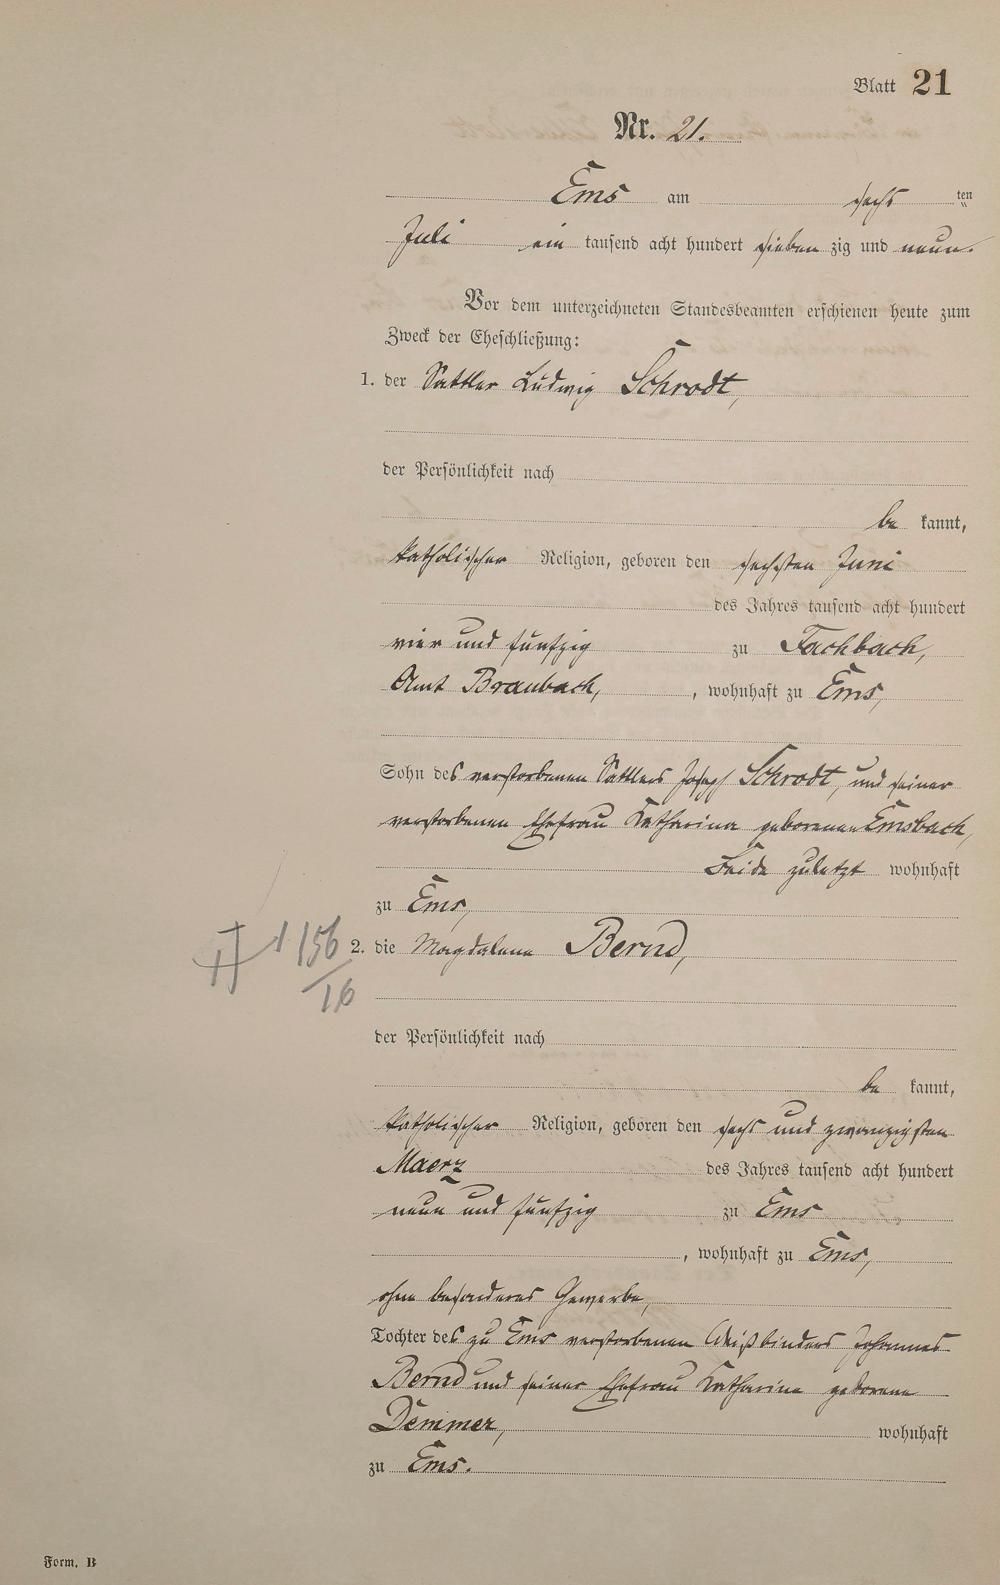 Blatt 21
Nr. 21.
Ems am sechs ten
Juli ein tausend acht hundert sieben zig und neun.
Vor dem unterzeichneten Standesbeamten erschienen heute zum
Zweck der Eheschließung:
1. der Sattler Ludwig Schrodt,
der Persönlichkeit nach
be kannt,
katholischer Religion, geboren den sechsten Juni
des Jahres tausend acht hundert
vier und fünfzig zu Fachbach,
Amt Braubach, , wohnhaft zu Ems,
Sohn des verstorbenen Sattlers Joseph Schrodt, und seiner
verstorbenen Ehefrau Katharina geborenen Emsbach,
Beide zuletzt wohnhaft
zu Ems,
2. die Magdalena Bernd,
der Persönlichkeit nach
be kannt,
katholischer Religion, geboren den sechs und zwanzigsten
Maerz des Jahres tausend acht hundert
neun und fünfzig zu Ems
, wohnhaft zu Ems,
ohne besonderes Gewerbe,
Tochter des zu Ems verstorbenen Weißbinders Johannes
Bernd und seiner Ehefrau Katharina geborene
Demmer, wohnhaft
zu Ems.
Form. B